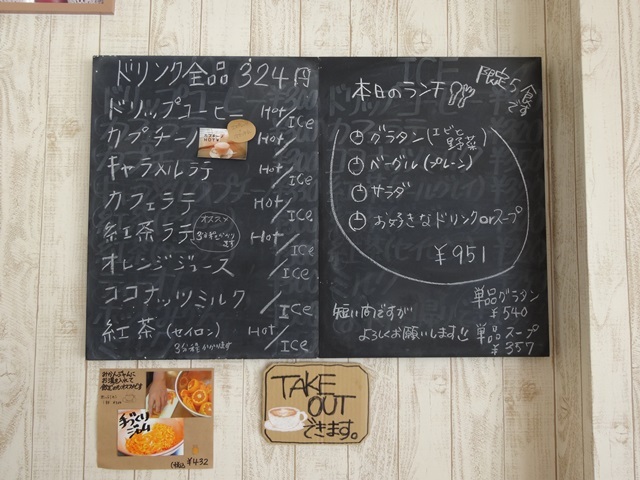 ドリンク全品 324円
ドリップコーヒー Hot/ICe
カプチーノ Hot/ICe
キャラメルラテ Hot/ICe
カフェラテ Hot/ICe
紅茶ラテ オススメ Hot/ICe
オレンジジュース /ICe
ココナッツミルク /ICe
紅茶 (セイロン) Hot/ICe
3分程かかります
限定5食
です
本日のランチ
グラタン(エビと
野菜)
ベーグル(プレーン)
サラダ
お好きなドリンクorスープ
¥951
単品グラタン
¥540
短い間ですが
よろしくお願いします!!
単品スープ
¥357
お湯を入れて
手づくり
ジャム
¥432
TAKE
OUT
できます。